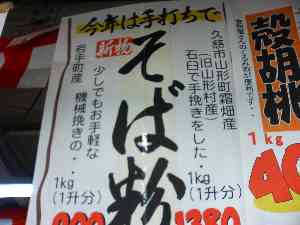 今年は手打ちで
新物
そば粉
久慈市山形町霜畑産
(旧山形村産)
石臼で手挽きをした・
1kg
(1升分)
1380
少しでもお手軽な
岩手町産 機械挽きの・・
1kg
(1升分)
900
殻胡桃
1kg
40